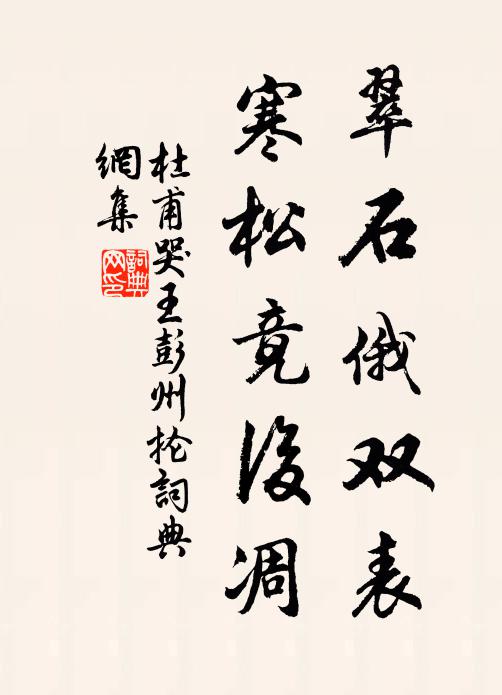 翠石俄双表
寒松竟後凋
杜甫哭王彭州抡詞典
網集
詞典网印